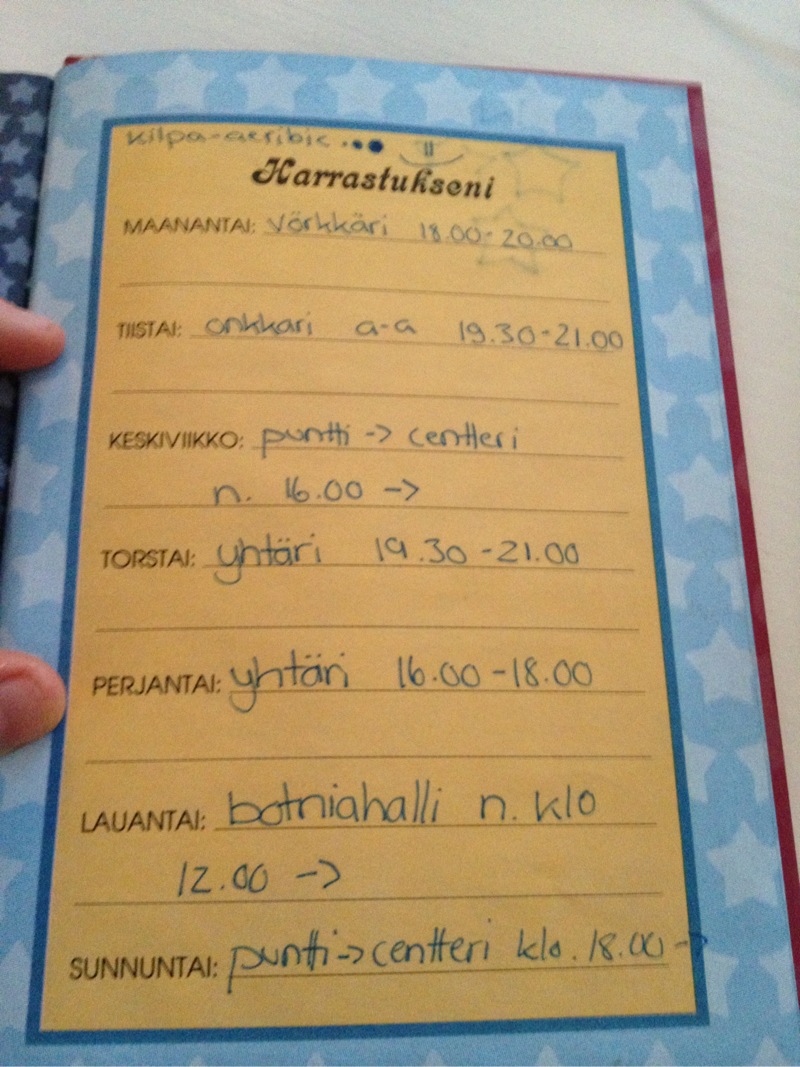 kilpa-aeribic...
Harrastukseni
MAANANTAI: Vörkkäri 18.00-20.00
TIISTAI: onkkari a-a 19.30-21.00
KESKIVIIKKO: puntti -> centteri
n. 16.00 ->
TORSTAI: yhtäri 19.30-21.00
PERJANTAI: yhtäri 16.00-18.00
LAUANTAI: botniahalli n. klo
12.00 ->
SUNNUNTAI: puntti-> centteri klo. 18.00 ->